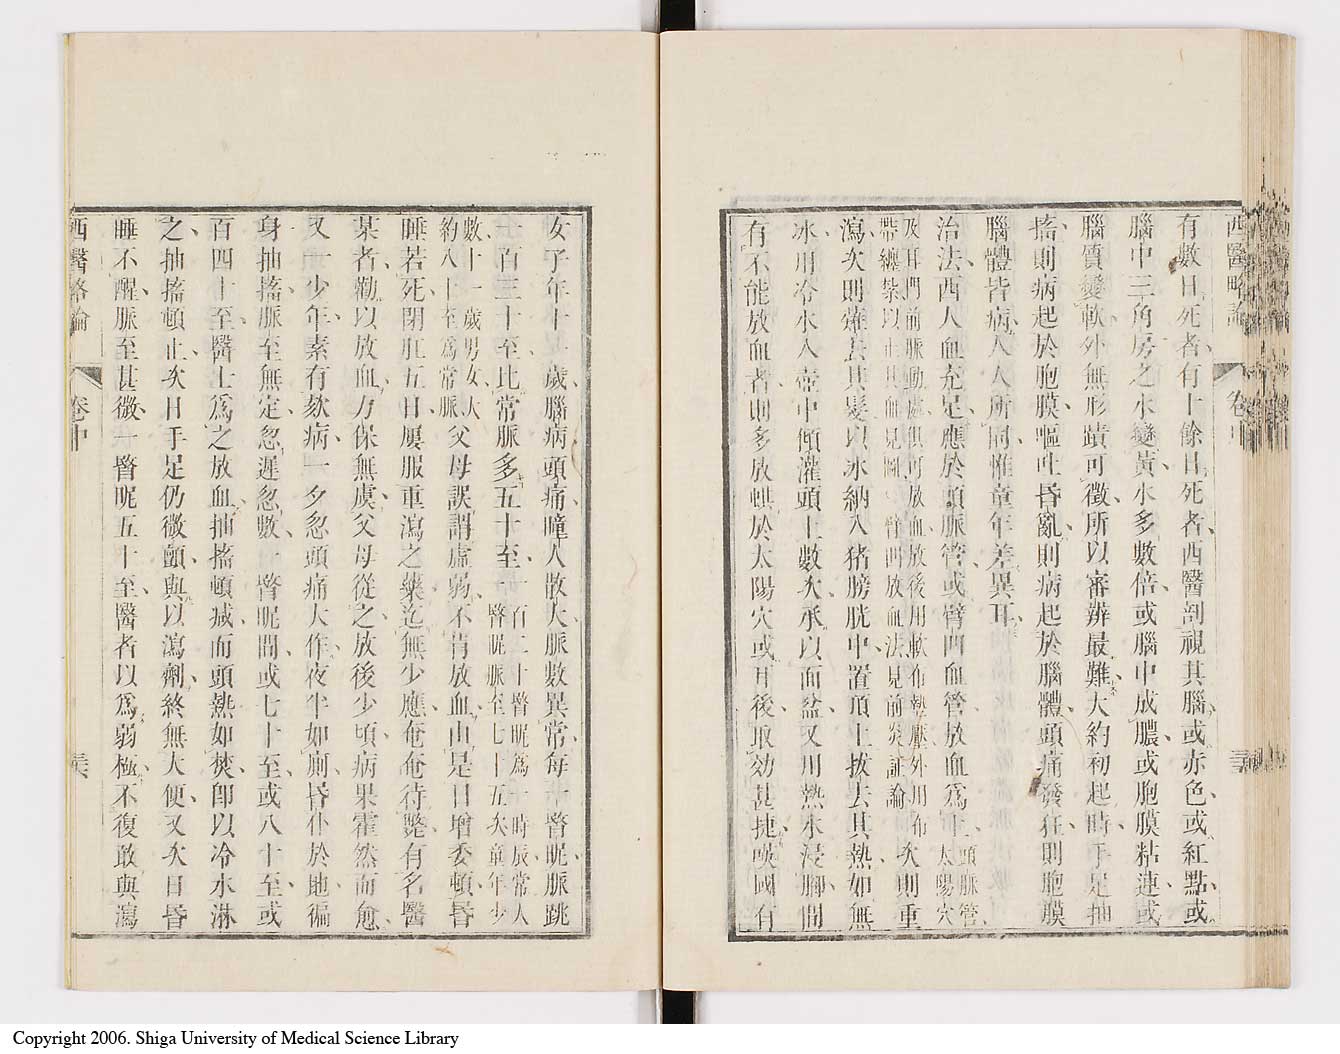 西醫略論 卷中
有數日死者有十餘日死者西醫剖視其腦或赤色或紅點或
腦中三角房之水變黃水多數倍或腦中成膿或胞膜粘連或
腦質變軟外無形蹟可徵所以審辨最難大約初起時手足抽
搐則病起於胞膜嘔吐昏亂則病起於腦體頭痛發狂則胞膜
腦體皆病人人所同惟童年差異耳
治法西人血充足應於頭脈管或臂凹血管放血為上頭脈管太陽穴
及耳門前脈動處俱可放血放後用軟布熱壓外用布
帶纏紮以止其血見圖臂凹放血法見前炎証論次則重
瀉次則薙去其髮以冰納入猪膀胱中置頂上拔去其熱如無
冰用冷水入壺中傾灌頭上數次承以面盆又用熱水浸腳間
有不能放血者則多放蜞於太陽穴或耳後取効甚捷㗳國有
女子年十 歲腦病頭痛瞳人散大脈數異常每十瞀呢脈跳
一百三十至比常脈多五十至一百二十瞀呢為一時辰常人一瞀呢脈至七十五次童年少
數十一歲男女大約八十至為常脈父母誤謂虛弱不肯放血由是日增委頓昏
睡若死閉肛五日屢服重瀉之藥迄無少應奄奄待斃有名醫
某者勸以放血力保無虞父母從之放後少頃病果霍然而愈
又一少年素有欬病一夕忽頭痛大作夜半如廁昏仆於地徧
身抽搐脈至無定忽遲忽數一瞀呢間或七十至或八十至或
百四十至醫士為之放血抽搐頓減而頭熱如焚即以冷水淋
之抽搐頓止次日手足仍微顫與以瀉劑終無大便又次日昏
睡不醒脈至甚微一瞀呢五十至醫者以為弱極不復敢與瀉
西醫略論 卷中